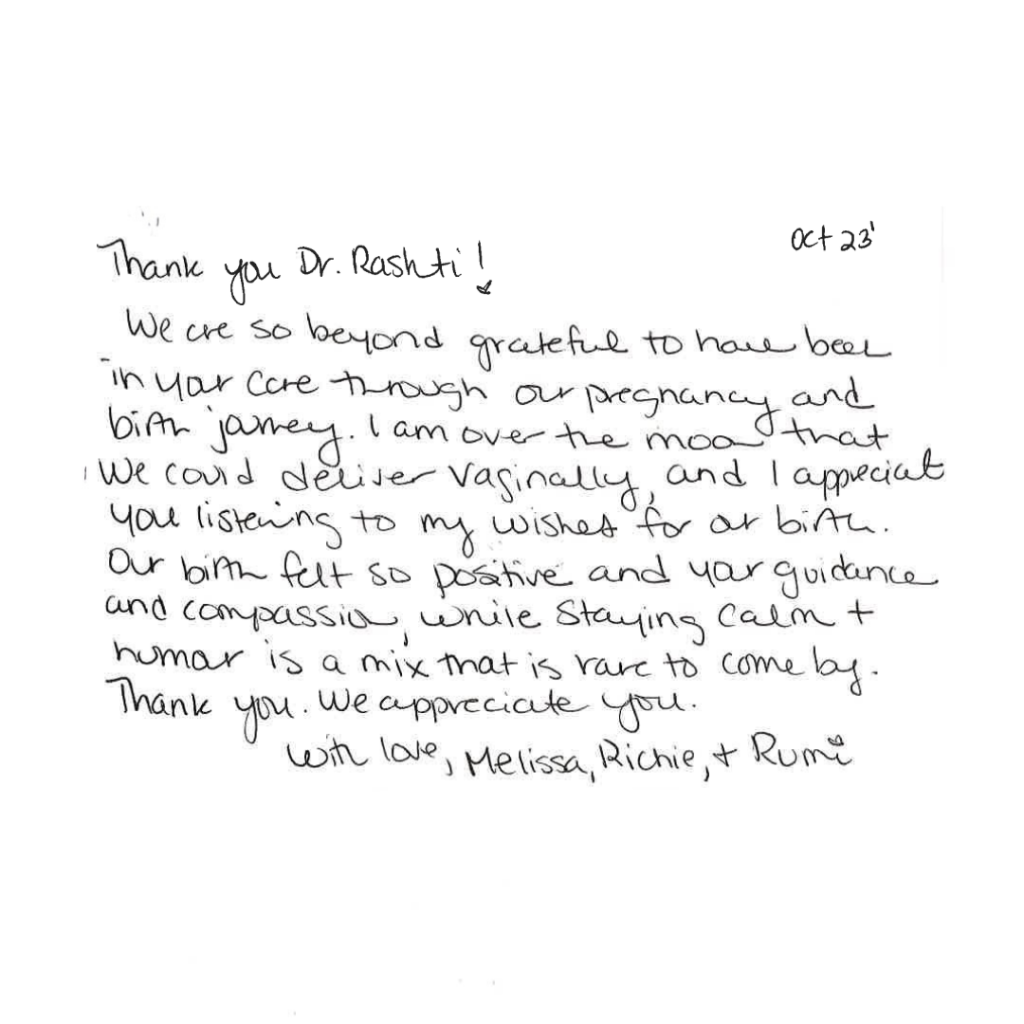 Oct 23'
Thank you Dr. Rashti!
We are so beyond grateful to have been
in your care through our pregnancy and
birth journey. I am over the moon that
we could deliver vaginally, and I appreciate
you listening to my wishes for our birth.
Our birth felt so positive and your guidance
and compassion, while staying calm +
humor is a mix that is rare to come by.
Thank you. We appreciate you.
With love, Melissa, Richie, + Rumi